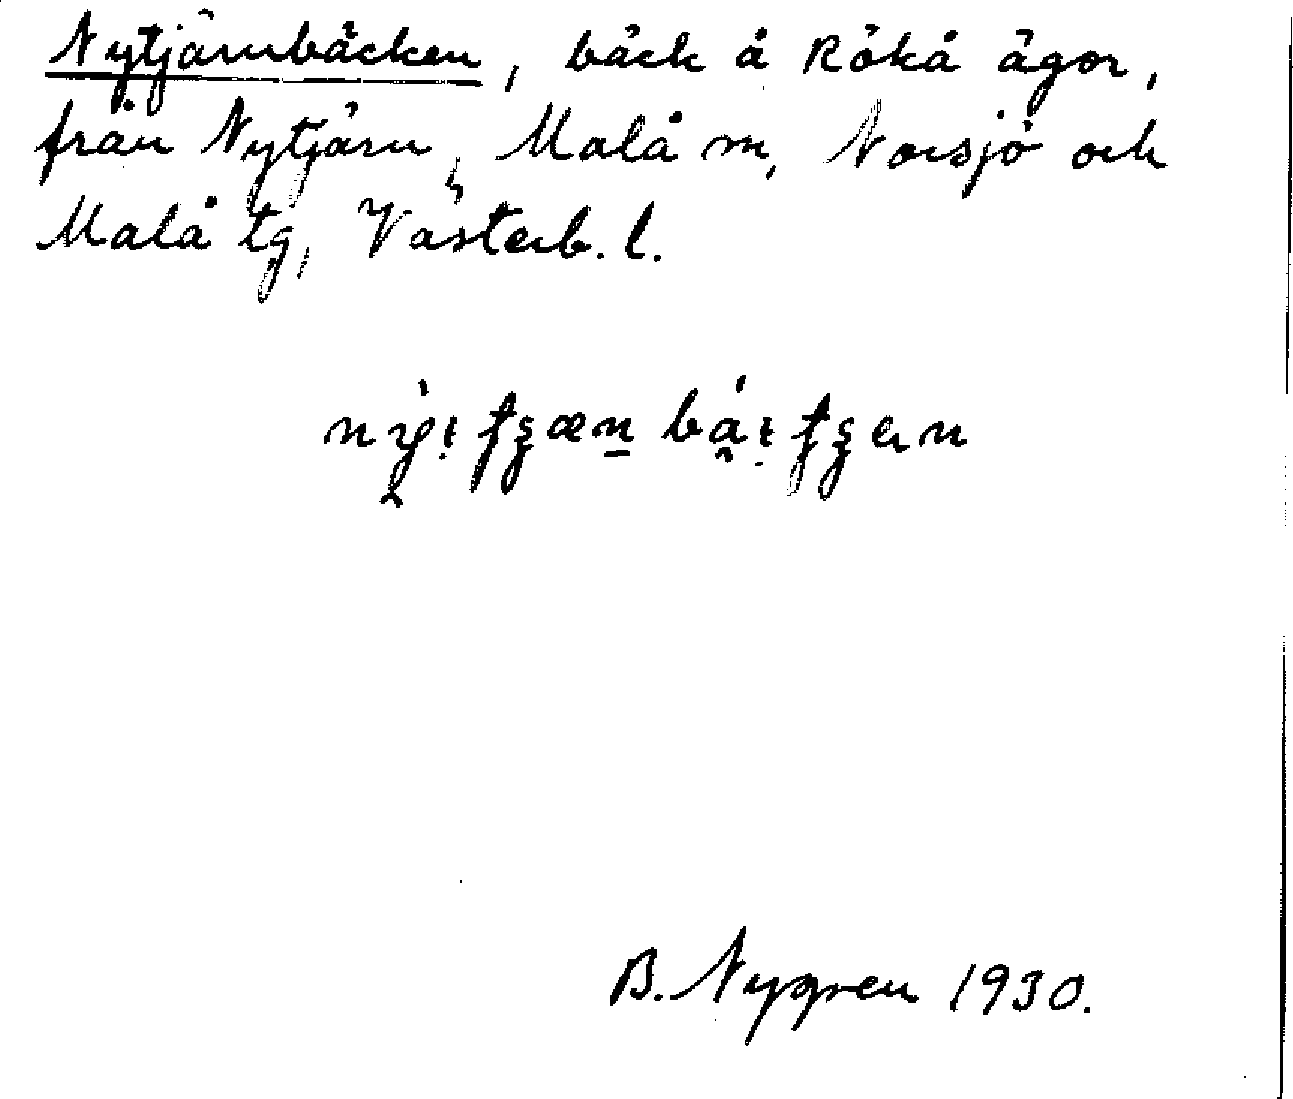 Nytjärnbäcken, bäck å Rökå ägor,
från Nytjärn, Malå m, Norsjö och
Malå tg, Västerb. l.
B. Nygren 1930.